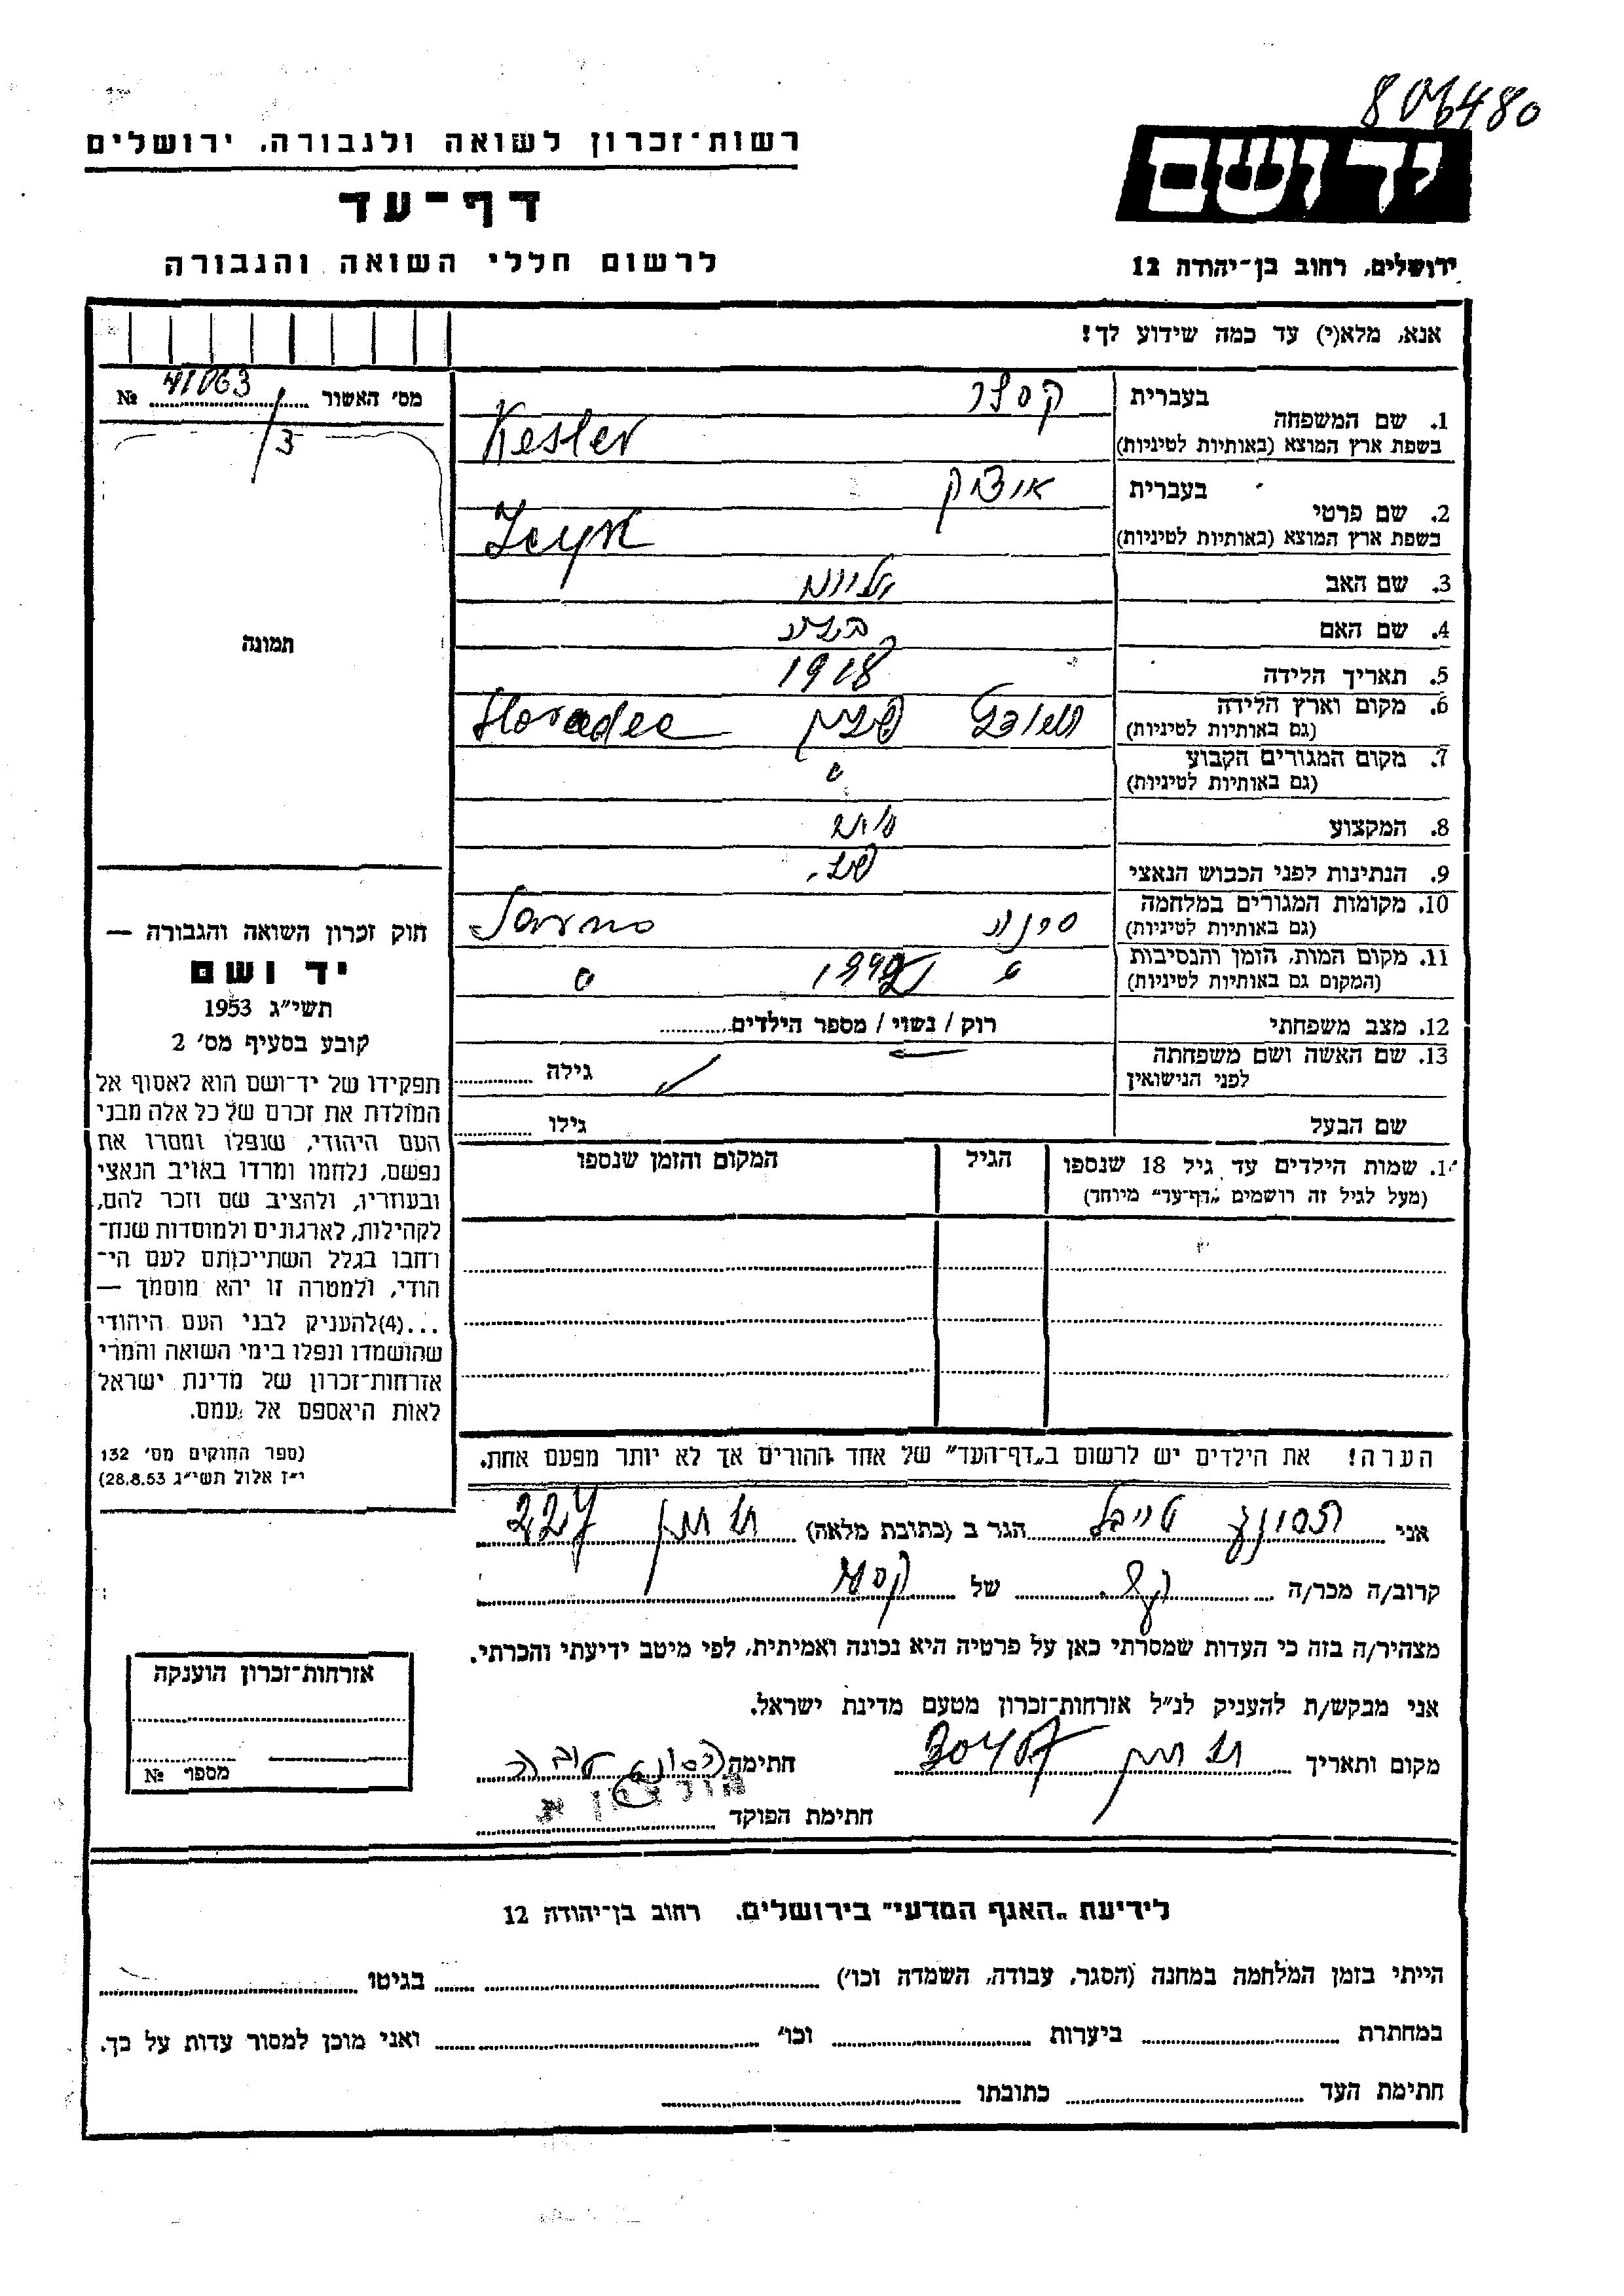 806480
רשות־זכרון לשואה ולגבורה, ירושלים
יד ושם
דף־עד
לרשום חללי השואה והגבורה
ירושלים, רחוב בן־יהודה 12
אנא, מלא(י) עד כמה שידוע לך!
מס׳ האשור 41063 №
/3
תמונה
1. שם המשפחה
בעברית קסלר
בשפת ארץ המוצא (באותיות לטיניות) Kesler
2. שם פרטי
בעברית איציק
בשפת ארץ המוצא (באותיות לטיניות) Icyk
3. שם האב
4. שם האם
5. תאריך הלידה 1918
6. מקום וארץ הלידה
(גם באותיות לטיניות) Horodec
7. מקום המגורים הקבוע
(גם באותיות לטיניות) "
8. המקצוע
9. הנתינות לפני הכבוש הנאצי
10. מקומות המגורים במלחמה
(גם באותיות לטיניות) Sarno
11. מקום המות, הזמן והנסיבות
(המקום גם באותיות לטיניות) " "
12. מצב משפחתי רוק / נשוי / מספר הילדים
13. שם האשה ושם משפחתה
לפני הנישואין גילה
שם הבעל גילו
1. שמות הילדים עד גיל 18 שנספו
(מעל לגיל זה רושמים „דף־עד" מיוחד)
הגיל
המקום והזמן שנספו
חוק זכרון השואה והגבורה —
יד ושם
תשי״ג 1953
קובע בסעיף מס׳ 2
תפקידו של יד־ושם הוא לאסוף אל
המולדת את זכרם של כל אלה מבני
העם היהודי, שנפלו ומסרו את
נפשם, נלחמו ומרדו באויב הנאצי
ובעוזריו, ולהציב שם וזכר להם,
לקהילות, לארגונים ולמוסדות שנח־
רחבו בגלל השתייכותם לעם הי־
הודי, ולמטרה זו יהא מוסמך —
...(4)להעניק לבני העם היהודי
שהושמדו ונפלו בימי השואה והמרי
אזרחות־זכרון של מדינת ישראל
לאות היאספם אל עמם.
(ספר החוקים מס׳ 132
י״ז אלול תשי״ג 28.8.53)
הערה! את הילדים יש לרשום ב„דף־העד" של אחד ההורים אך לא יותר מפעם אחת.
אני טייבל הגר ב (כתובת מלאה) 227
קרוב/ה מכר/ה של
מצהיר/ה בזה כי העדות שמסרתי כאן על פרטיה היא נכונה ואמיתית, לפי מיטב ידיעתי והכרתי.
אני מבקש/ת להעניק לנ״ל אזרחות־זכרון מטעם מדינת ישראל.
מקום ותאריך חתימה
חתימת הפוקד
אזרחות־זכרון הוענקה
מספר №
לידיעת „האגף המדעי" בירושלים, רחוב בן־יהודה 12
הייתי בזמן המלחמה במחנה (הסגר, עבודה, השמדה וכו׳) בגיטו
במחתרת ביערות וכו׳ ואני מוכן למסור עדות על כך.
חתימת העד כתובתו